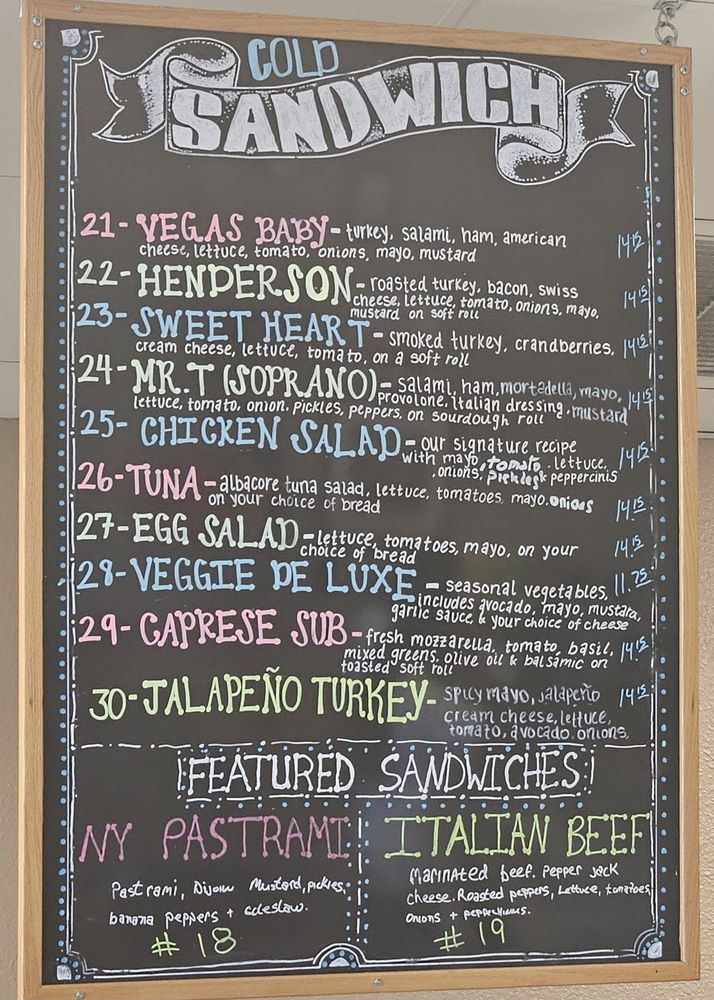 COLD
SANDWICH
21- VEGAS BABY- turkey, salami, ham, american
cheese, lettuce, tomato, onions, mayo, mustard
14.15
22- HENDERSON- roasted turkey, bacon, swiss
cheese, lettuce, tomato, onions, mayo,
mustard on soft roll
14.15
23- SWEET HEART- smoked turkey, crandberries,
cream cheese, lettuce, tomato, on a soft roll
14.15
24- MR.T (SOPRANO)- salami, ham, mortadella, mayo,
provolone, italian dressing, mustard
lettuce, tomato, onion, pickles, peppers, on sourdough roll
14.15
25- CHICKEN SALAD- our signature recipe
with mayo, tomato, lettuce,
onions, pickles & peppercinis
14.15
26- TUNA- albacore tuna salad, lettuce, tomatoes, mayo, onions
on your choice of bread
14.15
27- EGG SALAD- lettuce, tomatoes, mayo, on your
choice of bread
14.15
28- VEGGIE DE LUXE- seasonal vegetables,
includes avocado, mayo, mustard,
garlic sauce, & your choice of cheese
11.75
29- CAPRESE SUB- fresh mozzarella, tomato, basil,
mixed greens, olive oil & balsamic on
toasted soft roll
14.15
30- JALAPEÑO TURKEY- spicy mayo, jalapeño
cream cheese, lettuce,
tomato, avocado, onions,
14.15
FEATURED SANDWICHES
NY PASTRAMI
Pastrami, Dijon Mustard, pickles,
banana peppers + coleslaw.
# 18
ITALIAN BEEF
Marinated beef. Pepper jack
cheese. Roasted peppers, Lettuce, tomatoes,
onions +
# 19